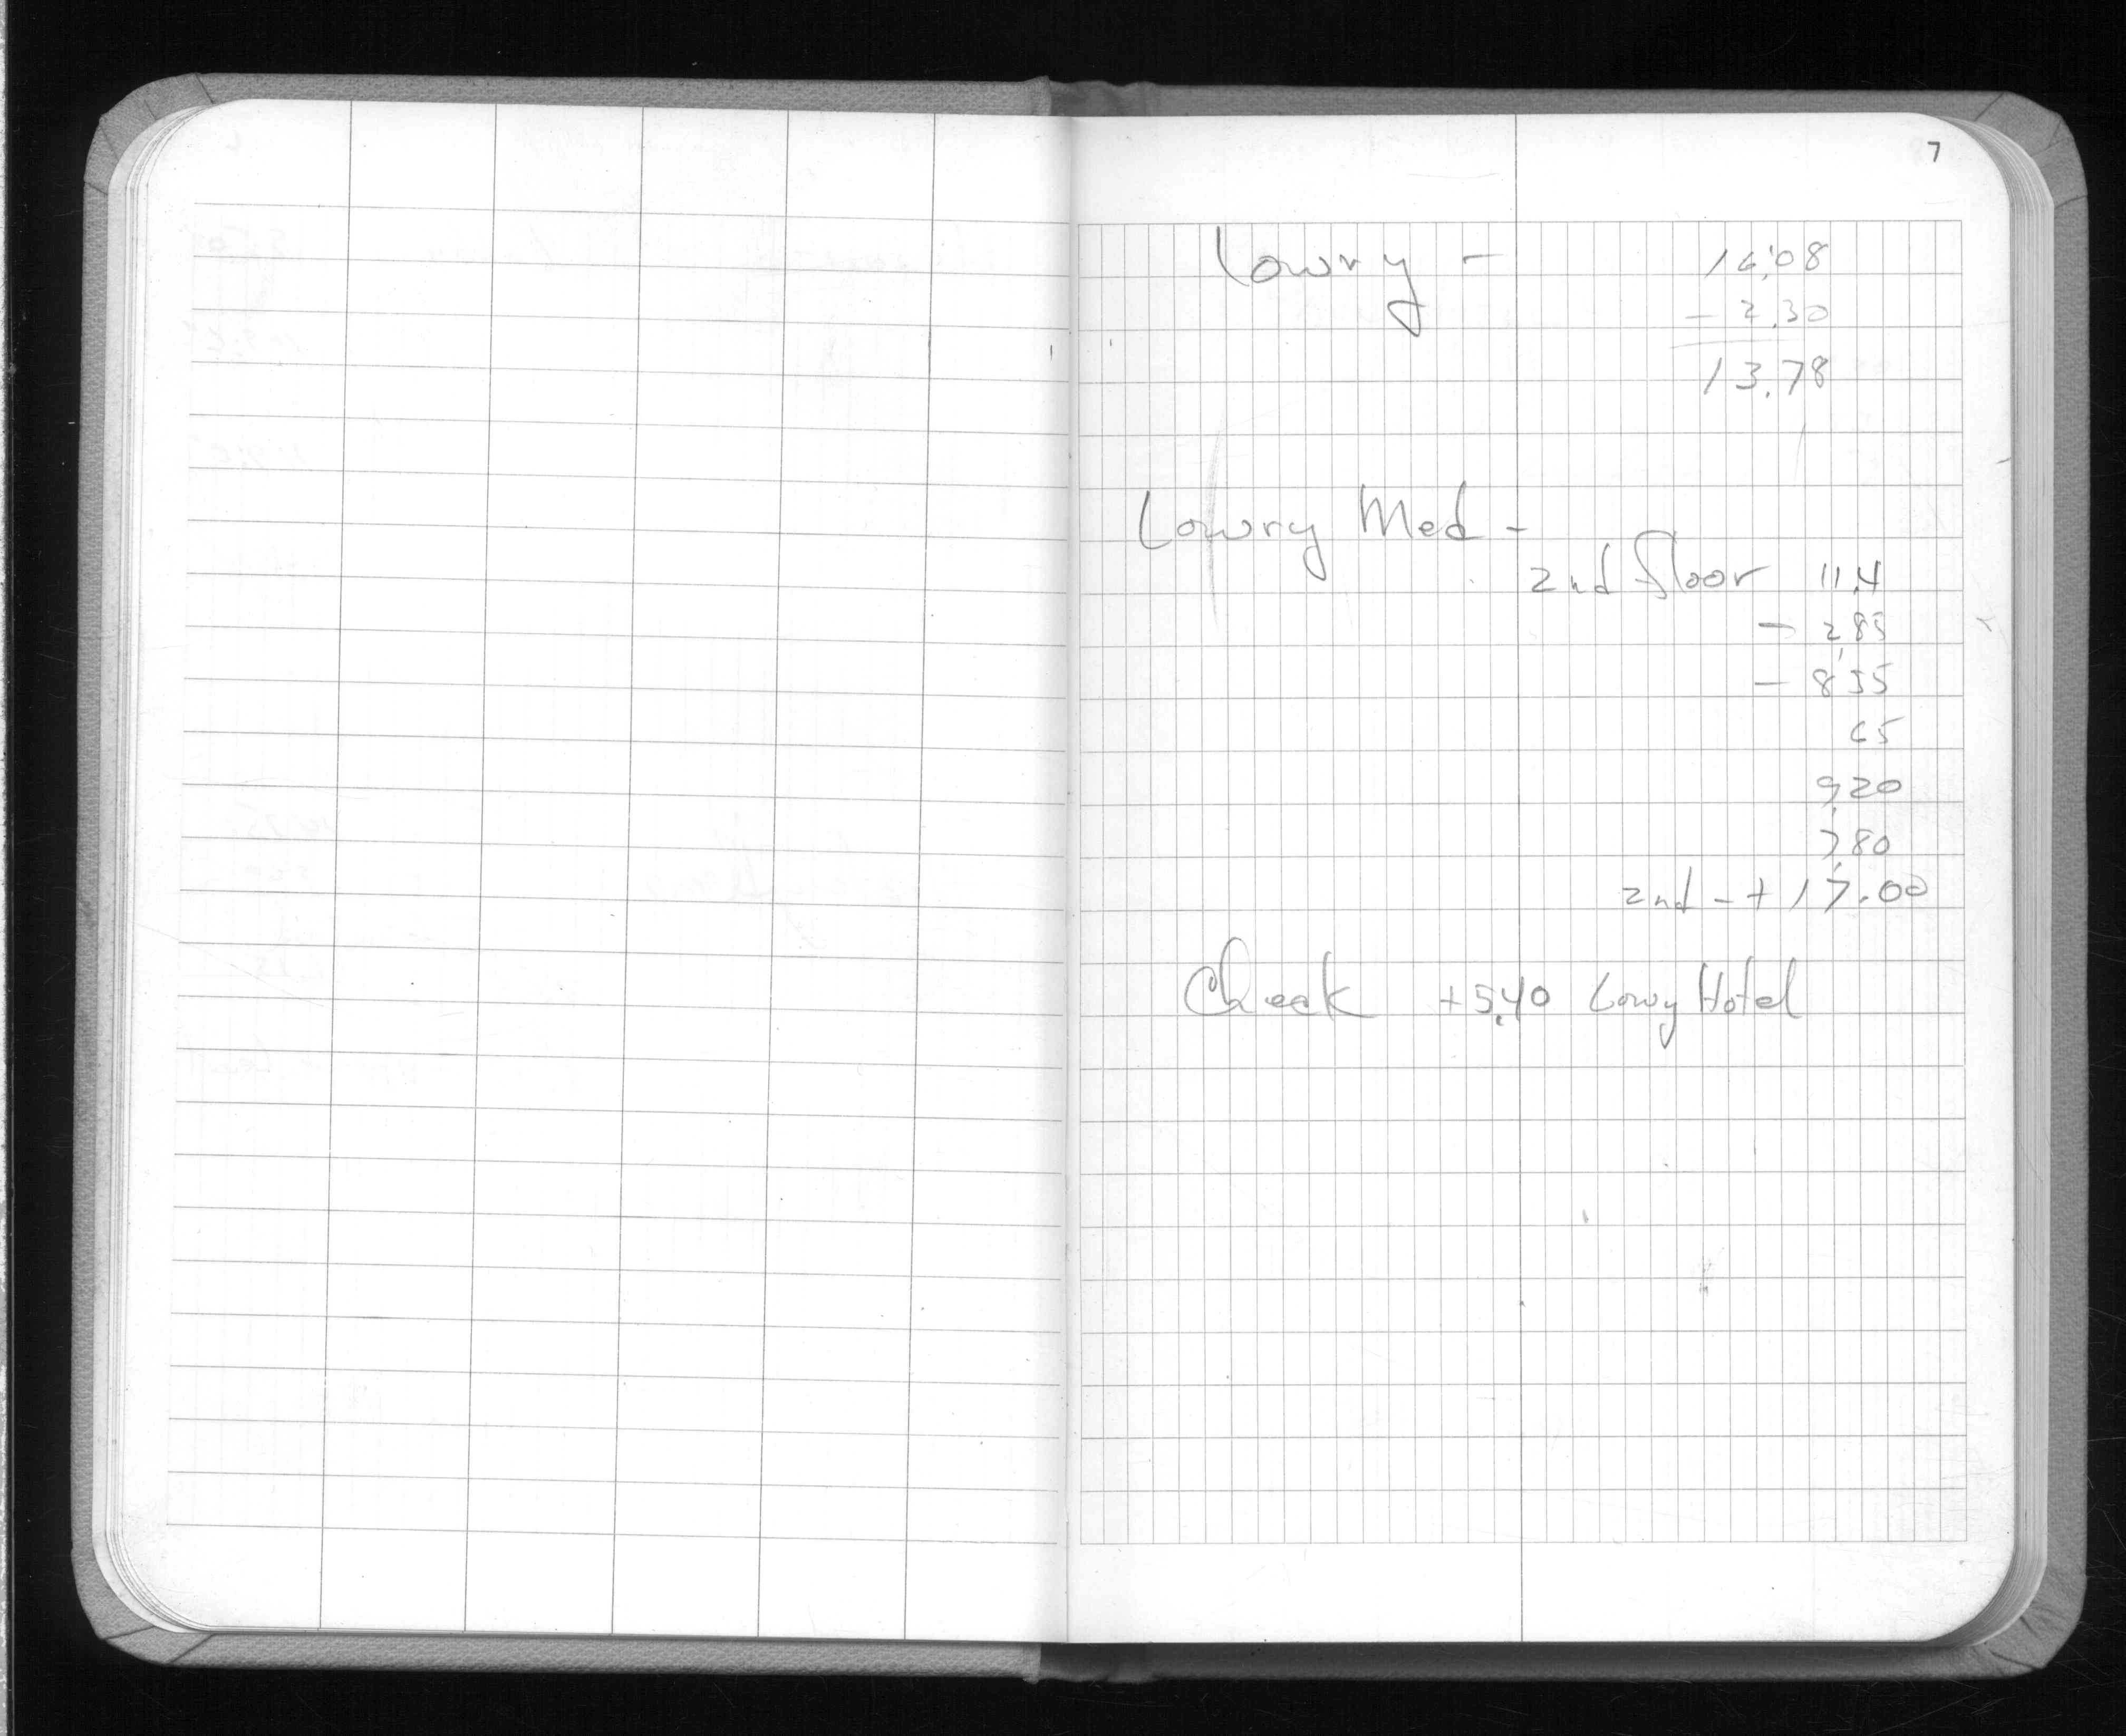 7
Lowry - 16.08
- 2.30
13.78
Lowry Med -
2nd floor 11.4
- 2.85
- 8.55
65
9.20
7.80
2nd - + 17.00
Check +5.40 Lowry Hotel